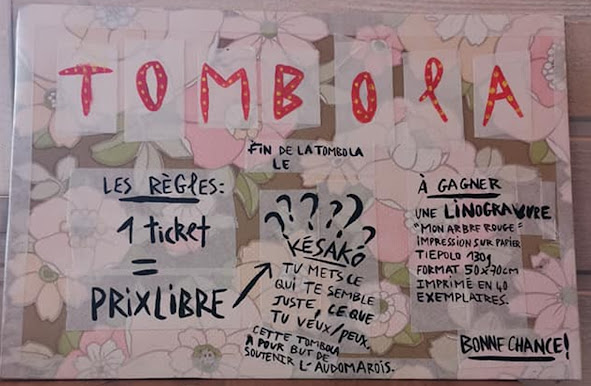 TOMBOLA
FIN DE LA TOMBOLA
LE
LES RÈGLES:
1 ticket
=
PRIX LIBRE
????
KÉSAKÓ
TU METS CE
QUI TE SEMBLE
JUSTE, CE QUE
TU VEUX/PEUX.
CETTE TOMBOLA
A POUR BUT DE
SOUTENIR L'AUDOMAROIS.
À GAGNER
UNE LINOGRAVURE
"MON ARBRE ROUGE"
IMPRESSION SUR PAPIER
TIEPOLO 130g
FORMAT 50x70cm
IMPRIMÉ EN 40
EXEMPLAIRES.
BONNE CHANCE!